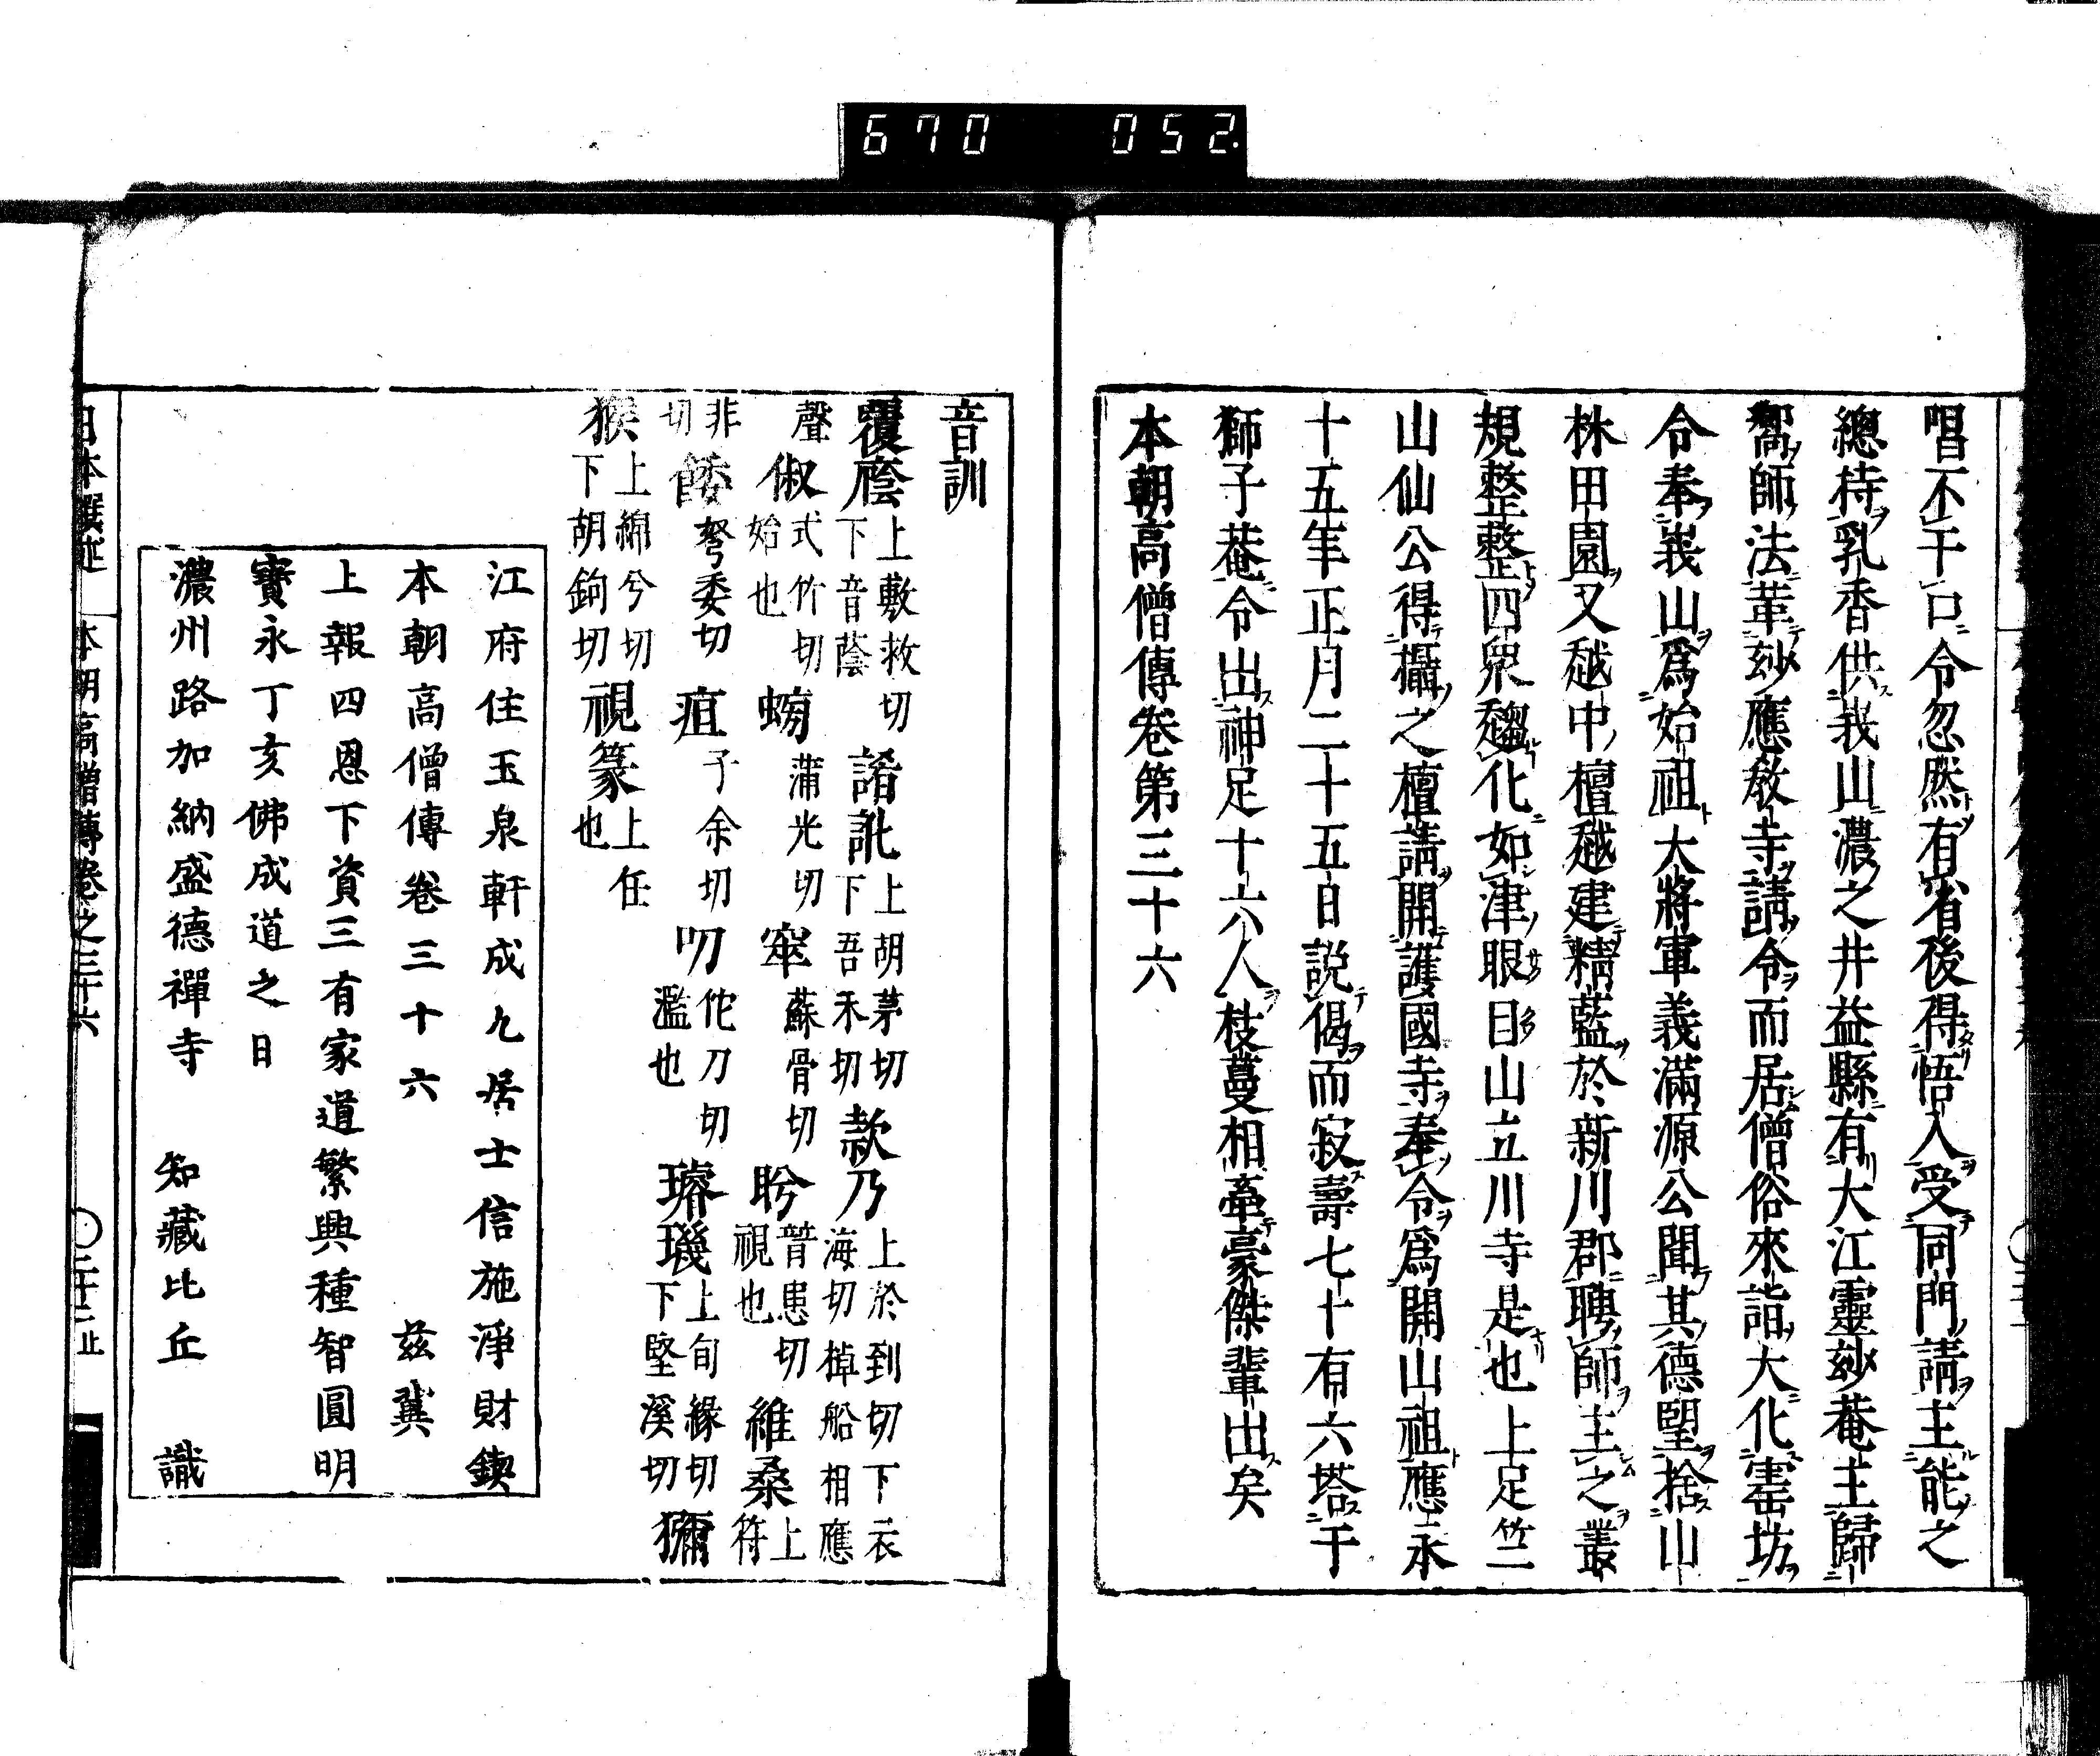 670 052.
唱不干口令忽然有省後得悟入受同門請主能之
總持乳香供峩山濃之井益縣有大江靈玅菴主歸
嚮師法革玅應敎寺請令而居僧俗來詣大化寰坊
令奉峩山爲始祖大將軍義滿源公聞其德望捨山
林田園又越中檀越建精藍於新川郡聘師主之叢
規整整四衆趨化如津眼目山立川寺是也上足竺
山仙公得攝之檀請開護國寺奉令爲開山祖應永
十五年正月二十五日説偈而寂壽七十有六塔于
獅子菴令出神足十六人枝蔓相牽豪傑輩出矣
本朝高僧傳卷第三十六
音訓
覆廕上敷救切下音蔭 諳訛上胡茅切下吾禾切 款乃上於到切下衣海切棹船相應
聲 俶式竹切始也 螃蒲光切 窣蘇骨切 盻普患切視也 維桑上符
非切 餧弩委切 疽子余切 叨佗刀切濫也 璿璣上旬緣切下堅溪切 獼
猴上綿兮切下胡鉤切 視篆上任也
江府住玉泉軒成九居士信施淨財鍥
本朝高僧傳卷三十六 茲冀
上報四恩下資三有家道繁興種智圓明
寶永丁亥佛成道之日
濃州路加納盛德禪寺 知藏比丘 識
日本撰述 本朝高僧傳卷之三十六 〇二十二止